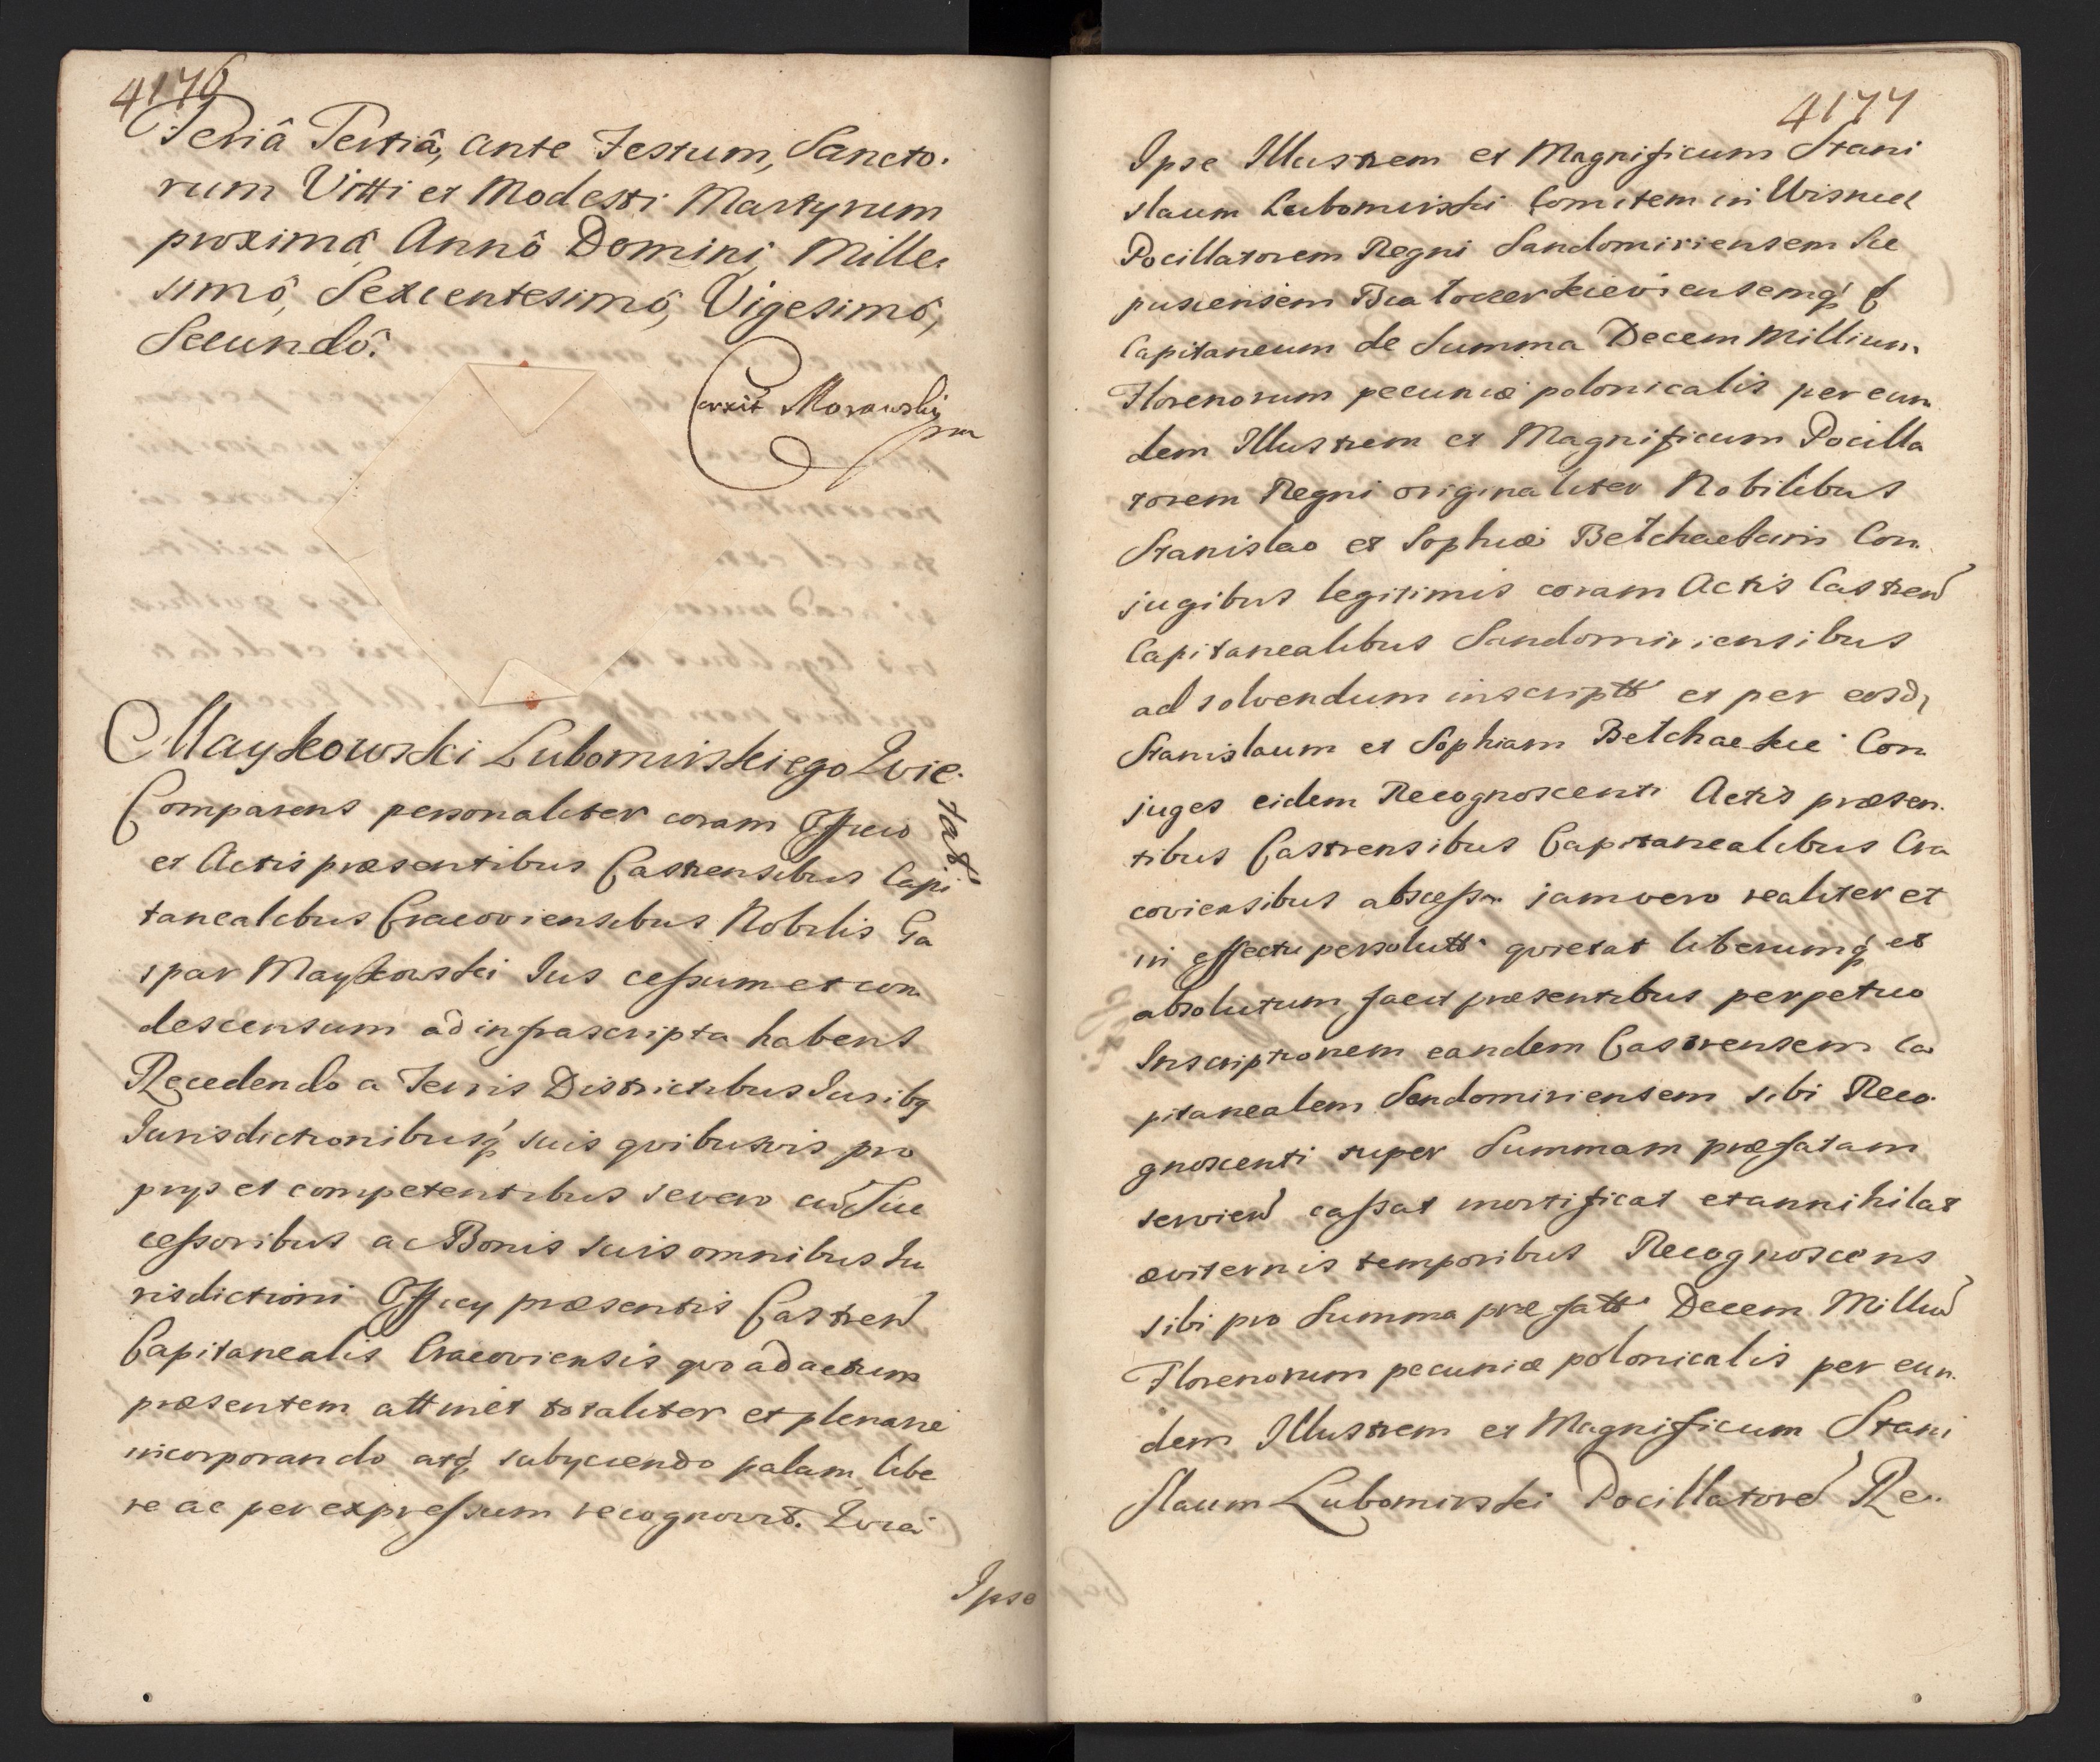 4176
Feriâ Tertiâ, ante Festum, Sancto.
rum Vitti et Modesti Martyrum
proximâ Annô Domini Mille.
simô, Sexcentesimô, Vigesimô,
Secundô.
Corexit Morawski
mp
Maykowski Lubomirskiego Qvie.
tat.
Comparens personaliter coram Officio
et Actis præsentibus Castrensibus Capi
tanealibus Cracoviensibus Nobilis Ga
spar Maykowski Jus cessum et con
descensum ad infrascripta habens
Recedendo a Terris Districtibus Juribq
Jurisdictionibusq suis qvibusvis pro
prys et competentibus se vero cum Suc
cessoribus ac Bonis suis omnibus Ju
risdictioni Officy præsentis Castren
Capitanealis Cracoviensis qvo ad actum
præsentem attinet totaliter et plenarie
incorporando atq subyciendo palam libe
re ac per expressum recognovit. Qvia
Ipse
4177
Ipse Illustrem et Magnificum Stani
slaum Lubomirski Comitem in Wisnicz
Pocillatorem Regni Sandomiriensem Sce
pusiensem Biatocerkieviensemq
Capitaneum de Summa Decem Millium
Florenorum pecuniæ polonicalis per eun
dem Illustrem et Magnificum Pocilla
torem Regni originaliter Nobilibus
Stanislao et Sophiæ Betchackim Con
jugibus legitimis coram Actis Castren
Capitanealibus Sandomiriensibus
ad solvendum inscriptt et per eosd
Stanislaum et Sophiam Betchackie Con
juges eidem Recognoscenti Actis præsen.
tibus Castrensibus Capitanealibus Cra
coviensibus abscessa jam vero realiter et
in effectu persolutt qvietat liberumq et
absolutum facit præsentibus perpetuo
Inscriptionem eandem Castrensem Ca
pitanealem Sandomiriensem sibi Reco.
gnoscenti super Summam præfatam
servien cassat mortificat et annihilat
æviternis temporibus Recognoscens
sibi pro Summa præfatt Decem Milliu
Florenorum pecuniæ polonicalis per eun.
dem Illustrem et Magnificum Stani
slaum Lubomirski Pocillatore Re..